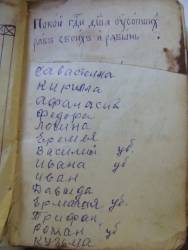 Покой г҃ди душа усопших
рабъ своихъ и рабынь
Савастиана
Кирила
Афанасия
Федора
Логина
Еремея
Василия уб.
Ивана уб
Иван
Давыда
Ермалая уб.
Трифан
Роман уб
Кузьма